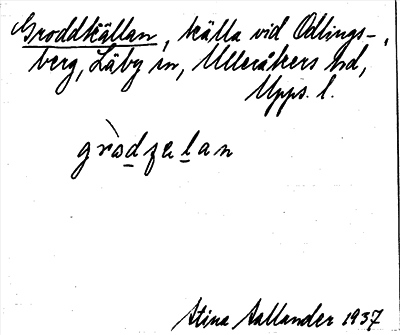 Groddkällan, källa vid Odlings-
berg, Läby sn, Ulleråkers hd,
Upps. l.
Stina Aallander 1937